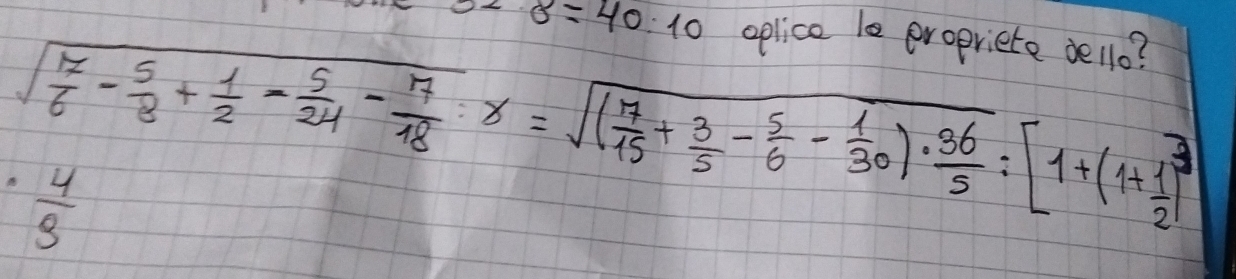 8 = 40 : 10 aplica la proprieta dello?
√(7/6 - 5/8 + 1/2 - 5/24 - 17/18) : x = √((7/15 + 3/5 - 5/6 - 1/30) · 36/5) : [1 + (1 + 1/2)³
· 4/9